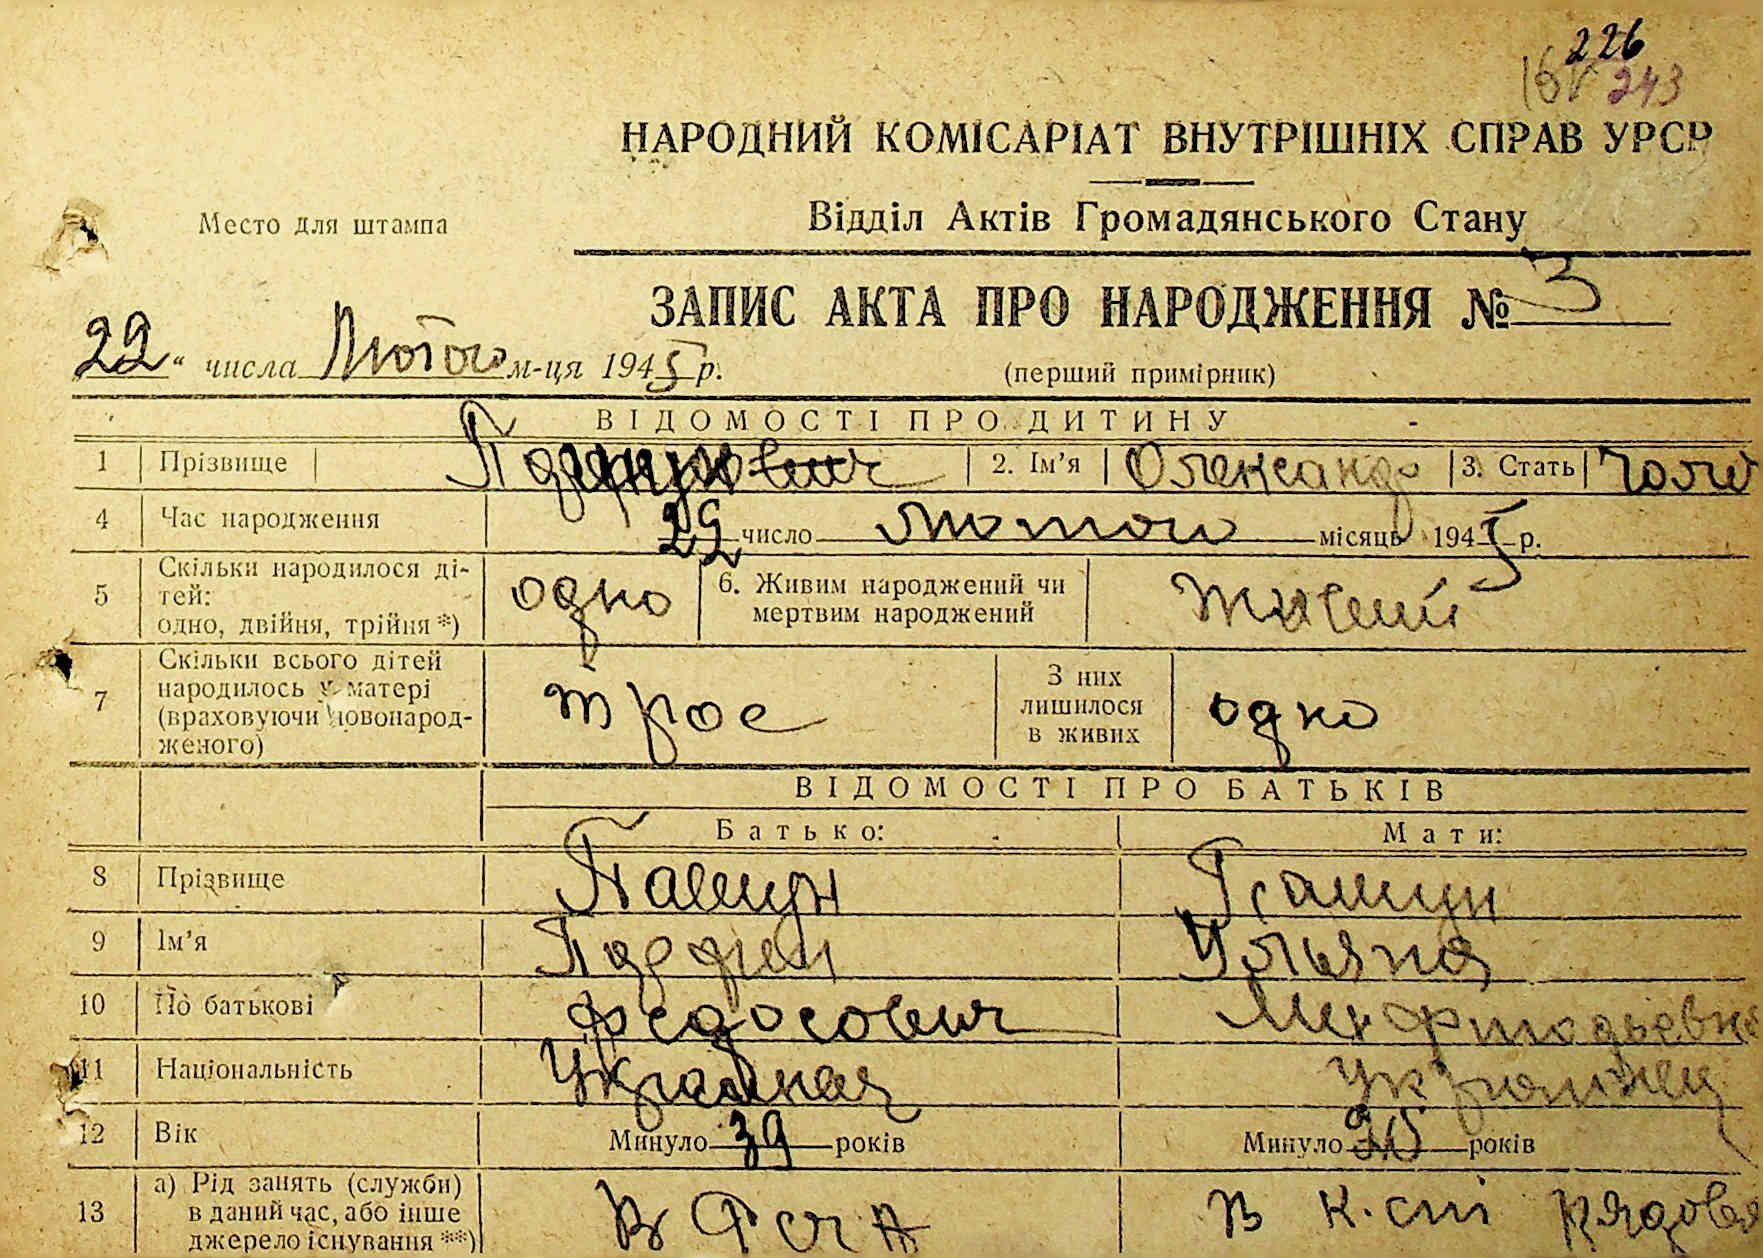 226
243
НАРОДНИЙ КОМІСАРІАТ ВНУТРІШНІХ СПРАВ УРСР
Відділ Актів Громадянського Стану
Место для штампа
ЗАПИС АКТА ПРО НАРОДЖЕННЯ № 3
22 " числа Лютого м-ця 1945 р.
(перший примірник)
ВІДОМОСТІ ПРО ДИТИНУ
1 Прізвище 2. Ім'я Олександр 3. Стать чолов
4 Час народження 22 число лютого місяць 1945 р.
5 Скільки народилося ді-
тей:
одно, двійня, трійня *) одно 6. Живим народжений чи
мертвим народжений живий
7 Скільки всього дітей
народилось у матері
(враховуючи новонарод-
женого) трое З них
лишилося
в живих одно
ВІДОМОСТІ ПРО БАТЬКІВ
Батько: Мати:
8 Прізвище
9 Ім'я Ульяна
10 По батькові Федосович
11 Національність
12 Вік Минуло 39 років Минуло років
13 а) Рід занять (служби)
в даний час, або інше
джерело існування **) в к-спі рядова